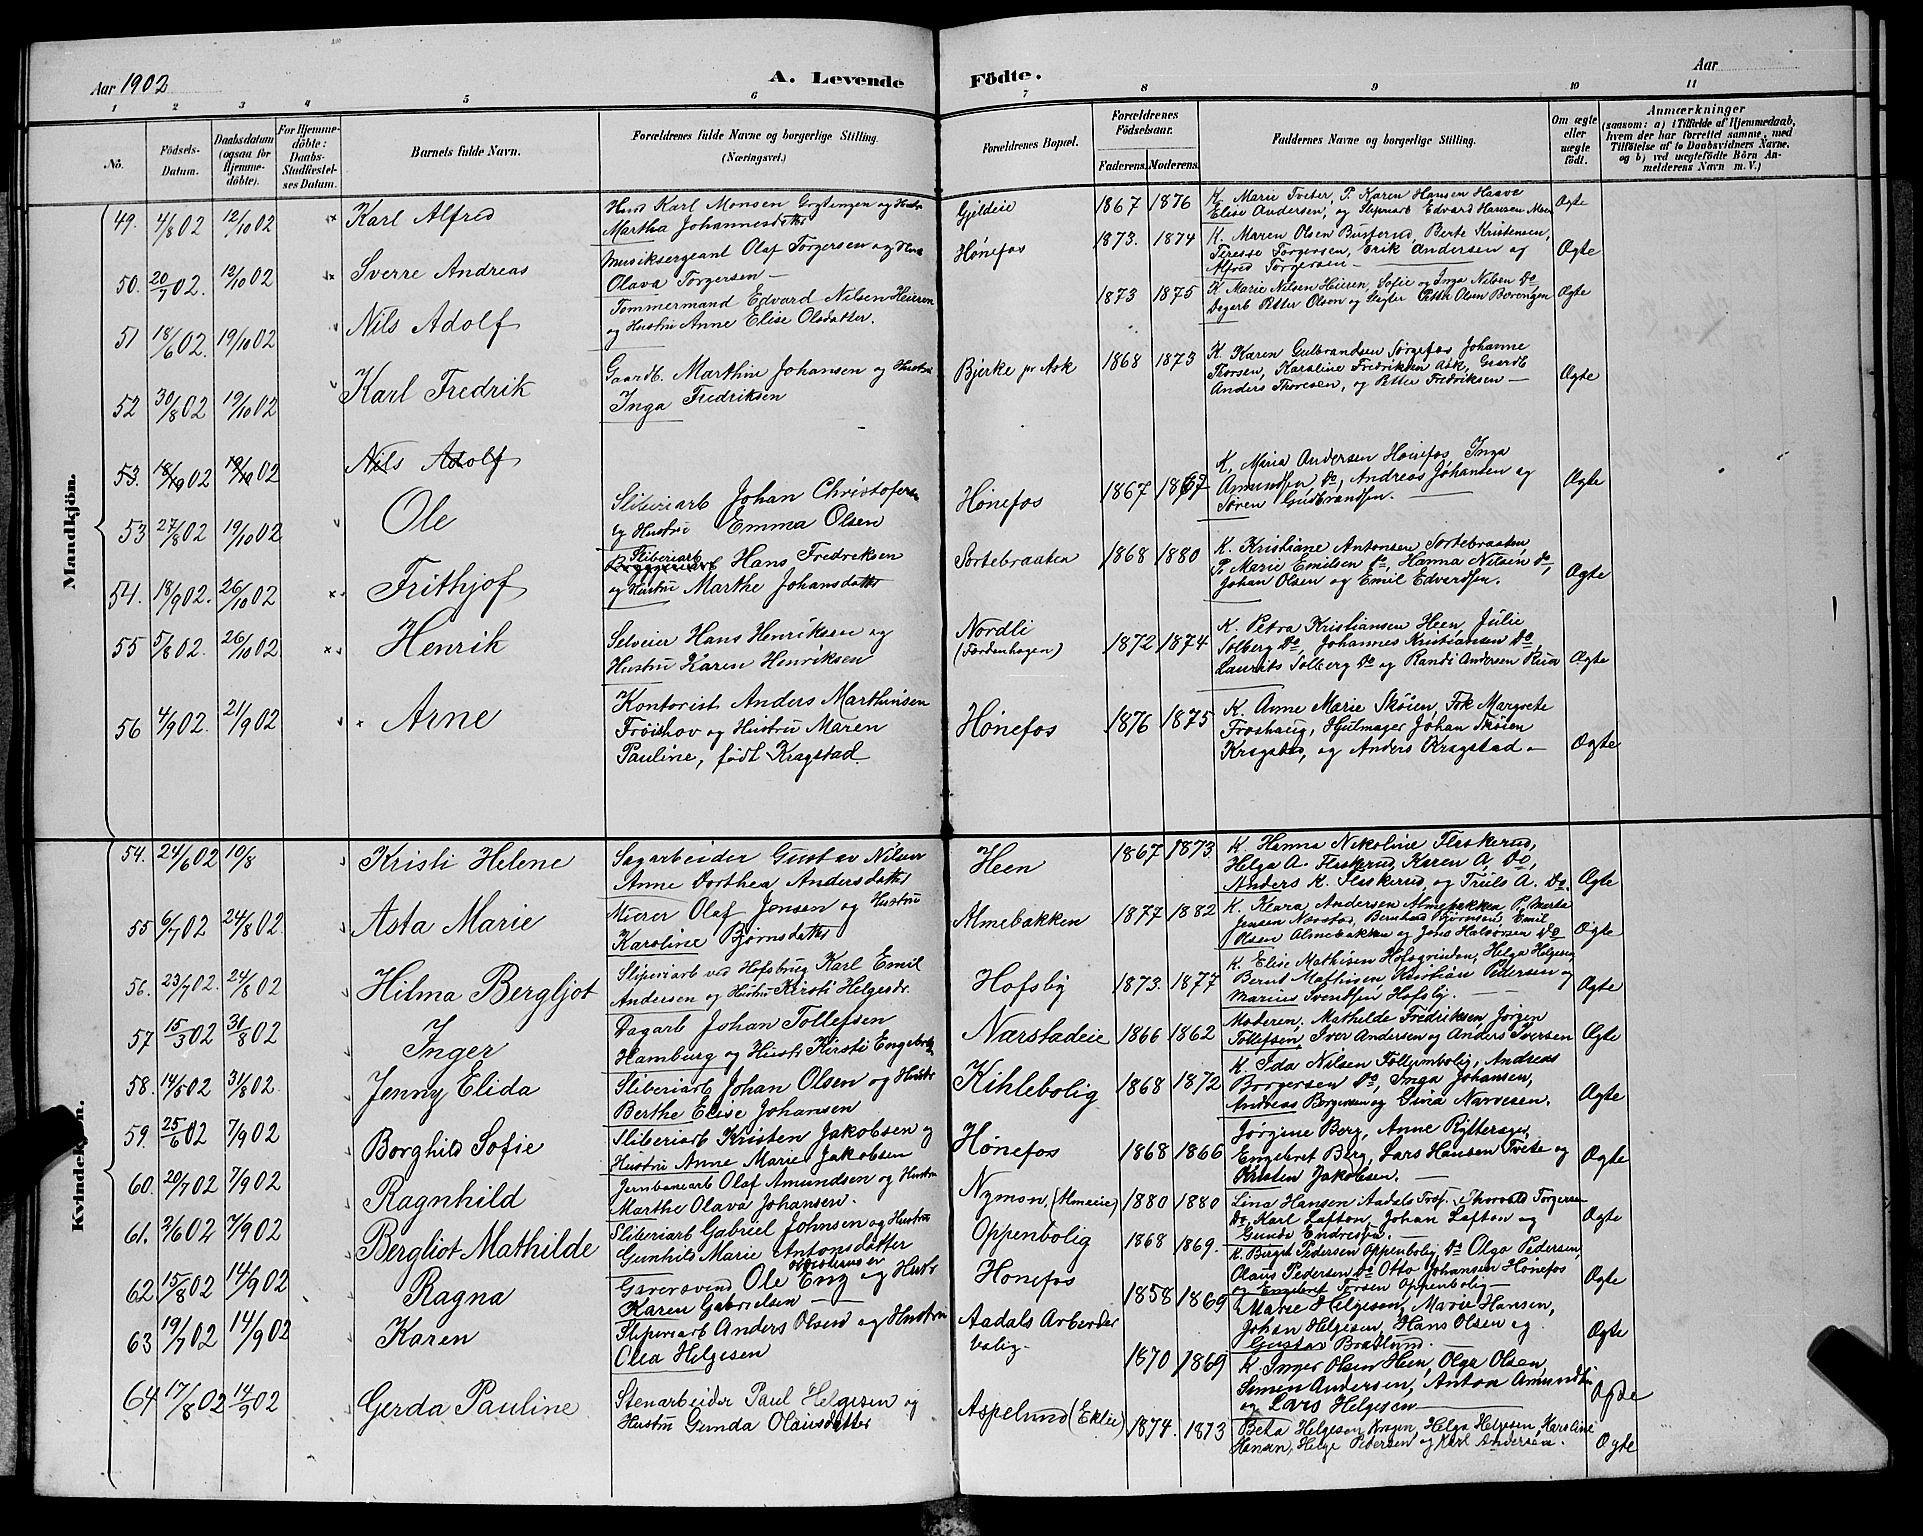 Aar 1902
A. Levende Födte.
Aar
1 2 3 4 5 6 7 8 9 10 11
No.
Födsels-Datum.
Daabsdatum (ogsaa for Hjemme-döbte).
For Hjemme-döbte: Daabs-Stadfæstel-ses Datum.
Barnets fulde Navn.
Forældrenes fulde Navne og borgerlige Stilling. (Næringsvei.)
Forældrenes Bopæl.
Forældrenes Födselsaar.
Faderens. Moderens.
Faddernes Navne og borgerlige Stilling.
Om ægte eller uægte födt.
Anmærkninger
(saasom: a) i Tilfælde af Hjemmedaab, hvem der har forrettet samme, med Tilföielse af to Daabsvidners Navne, og b) ved uægtefödte Börn An-melderens Navn m. V.)
Mandkjön.
49. 4/8 02 12/10 02 Karl Alfred
Karl Monsen og
Martha Johannesdatter
Gjeldeie 1867 1876
K. Marie Tveter, P. Karen Hansen Haave
Elise Andersen, og Slipearb Edvard Hansen Moen
Ægte
50. 20/7 02. 12/10 02 Sverre Andreas
Musiksergeant Olaf Torgersen og
Olava Torgersen —
Hønefos 1873. 1874
K. Maren Olsen Busterud, Berte Kristensen,
Terese Torgersen, Erik Andersen og
Alfred Torgersen —
Ægte
51 18/6 02. 19/10 02 Nils Adolf
Tømmermand Edvard Nilsen Heieren
og Hustru Anne Elise Olsdatter.
1873 1875
K. Marie Nilsen Heieren, Sofie og Inga Nilsen Do
Dagarb Petter Olsen og Petter Olsen Berengen
Ægte
52 30/8 02 19/10 02 Karl Fredrik
Gaardb. Marthin Johansen og Hustru
Inga Fredriksen
Bjerke pr Ask 1868 1873
K. Karen Gulbrandsen Sørgefos, Johanne
Thorsen, Karoline Fredriksen Ask, Gaardb
Anders Thoresen, og Petter Fredriksen —
Ægte
53. 18/9 02 19/10 02 Nils Adolf
53 27/8 02 19/10 02 Ole
Sliberiarb Johan Christofersen
og Hustru Emma Olsen
Hønefos 1867 1867
K. Maria Andersen Hønefos Inga
Amundsen Do, Andreas Johansen og
Søren Gudbrandsen. —
Ægte
54. 18/9 02. 26/10 02 Frithjof
Sliberiarb Hans Fredriksen
og Hustru Marthe Johansdatter
Sortebraaten 1868 1880
K. Kristiane Antonsen Sortebraaten
P. Marie Emilsen Do, Hanna Nilsen Do,
Johan Olsen og Emil Edvardsen.
Ægte
55 5/8 02. 26/10 02 Henrik
Selveier Hans Henriksen og
Hustru Karen Henriksen
Nordli
(Tordenhagen) 1872 1874
K. Petra Kristiansen Heen, Julie
Solberg Do, Johannes Kristiansen Do,
Laurits Solberg Do og Randi Andersen Rua
Ægte
56 4/9 02. 21/9 02 Arne
Kontorist Anders Marthinsen
Frøishov og Hustru Maren
Pauline, født Kragstad.
Hønefos 1876 1875
K. Anne Marie Skøien, Frk Margrete
Froshaug, Hjulmager Johan Skøien
Kragstad, og Anders Kragstad —
Ægte
Kvindekjön.
54. 24/6 02 10/8 Kristi Helene
Sagarbeider Gustav Nilsen
Anne Dorthea Andersdatter
Heen 1867 1873
K. Hanna Nikoline Flaskerud,
Helga A. Flaskerud, Karen A. Do,
Anders K. Flaskerud, og Truls A. Do.
Ægte
55 6/7 02 24/8 02. Asta Marie
Murer Olaf Jensen og Hustru
Karoline Bjørnsdatter
Almebakken 1877 1882
K. Klara Andersen Almebakken P. Marte
Jensen Nærstad, Bernhard Bjørnsen, Emil
Olsen Almebakken og Jens Halvorsen Do
Ægte
56. 23/7 02. 24/8 02 Hilma Bergljot
Sliperiarb ved Hofsbrug Karl Emil
Andersen og Hustru Kirsti Helgesdr.
Hofsby 1873. 1877
K. Elise Mathisen Hofsgrinden, Helga Helgesen
Bernt Mathisen, Kristian Pedersen og
Marius Svendsen Hofsby. —
Ægte
57 15/3 02 31/8 02 Inger
Dagarb Johan Tollefsen
Hamburg og Hustr Kirsti
Nærstadeie 1866 1862
Moderen, Mathilde Fredriksen, Jørgen
Tollefsen, Iver Andersen og Anders Iversen
Ægte
58. 14/5 02 31/8 02. Jenny Elida
Sliberiarb Johan Olsen og Hustr
Berthe Elise Johansen
Kihlebolig 1868 1872
K. Ida Nilsen Follumbolig, Andreas
Borgersen Do, Inga Johansen,
Andreas Borgersen og Sina Narvesen.
Ægte
59. 25/6 02 7/9 02 Borghild Sofie
Sliberiarb Kristen Jakobsen og
Hustru Anne Marie Jakobsen
Hønefos 1868 1866
Jørgine Berg, Anne Rytterager,
Engebret Berg, Lars Hansen Tveite og
Kristen Jakobsen. —
Ægte
60. 20/7 02 7/9 02 Ragnhild
Jernbanearb Olaf Amundsen og Hustru
Marthe Olava Johansen.
Nymon, (Almeie) 1880 1880
Lina Hansen Aadals Thorvald Torgersen
Do, Karl Lafton, Johan Lafton og
Gunda Endresen. —
Ægte
61. 3/6 02 7/9 02 Bergliot Mathilde
Sliberiarb Gabriel Johnsen og Hustru
Gunhild Marie Antonsdatter
Oppenbolig 1868 1869.
K. Birgit Pedersen Oppenbolig, Do Olga Pedersen,
Olaus Pedersen Do Otto Johansen Hønefos
og Engebret Torsen Oppenbolig —
Ægte
62 15/8 02 14/9 02 Ragna
Garversvend Ole Eng og Hustr
Karen Gabrielsen —
Hønefos 1858 1869
Marie Helgesen, Marie Hansen,
Johan Helgesen, Hans Olsen og
Gustav Braklund. —
Ægte
63 19/7 02 14/9 02 Karen
Sliperiarb Anders Olsen og Hustru
Olea Helgesen
Aadals Arbeider
bolig. 1870 1869
K Inger Olsen Heen, Olga Olsen,
Simen Andersen, Anton Amundsen
og Lars Helgesen —
Ægte
64 17/8 02 14/9 02 Gerda Pauline
Stenarbeider Paul Helgesen og
Hustru Gunda Olausdatter
Aspelund (Eklie) 1874. 1873
Beta Helgesen Kragen, Helga Helgesen, Karoline
Hansen, Helge Pedersen og Karl Andersen.
Ægte